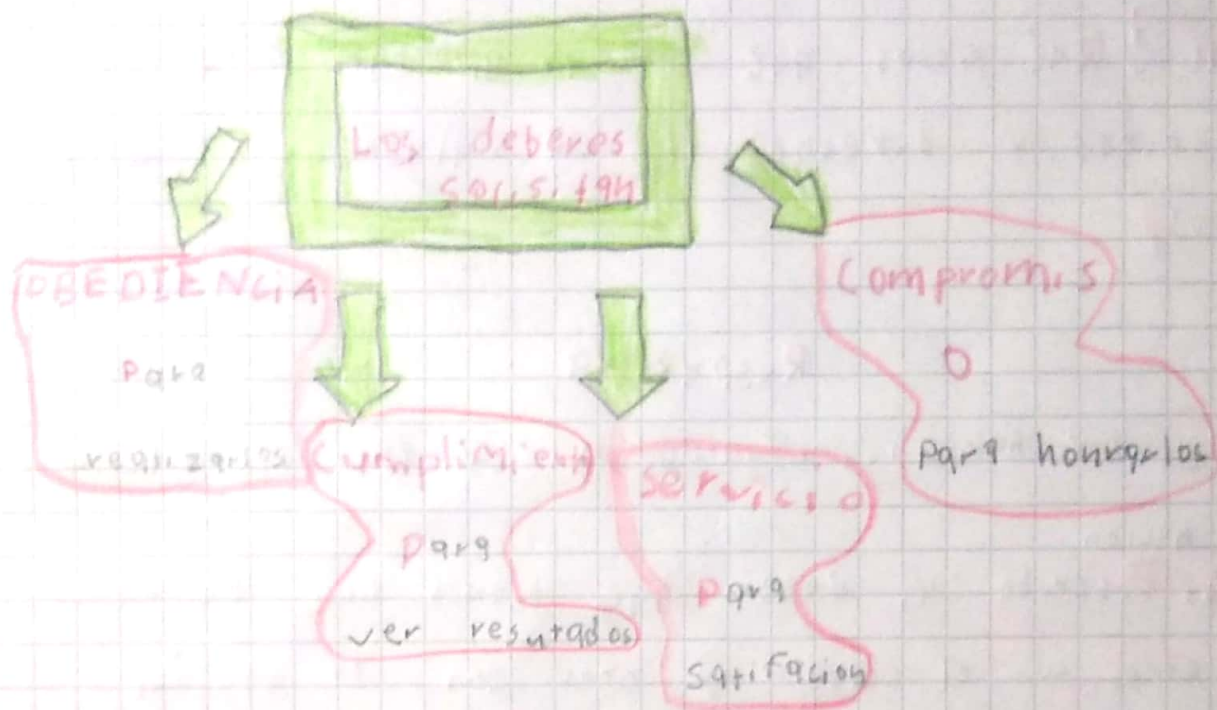 Los deberes
solisitan
OBEDIENCIA
para
realizarlos
Cumplimien
para
ver resutados
Servicio
para
satifacion
Compromis
o
para honrarlos